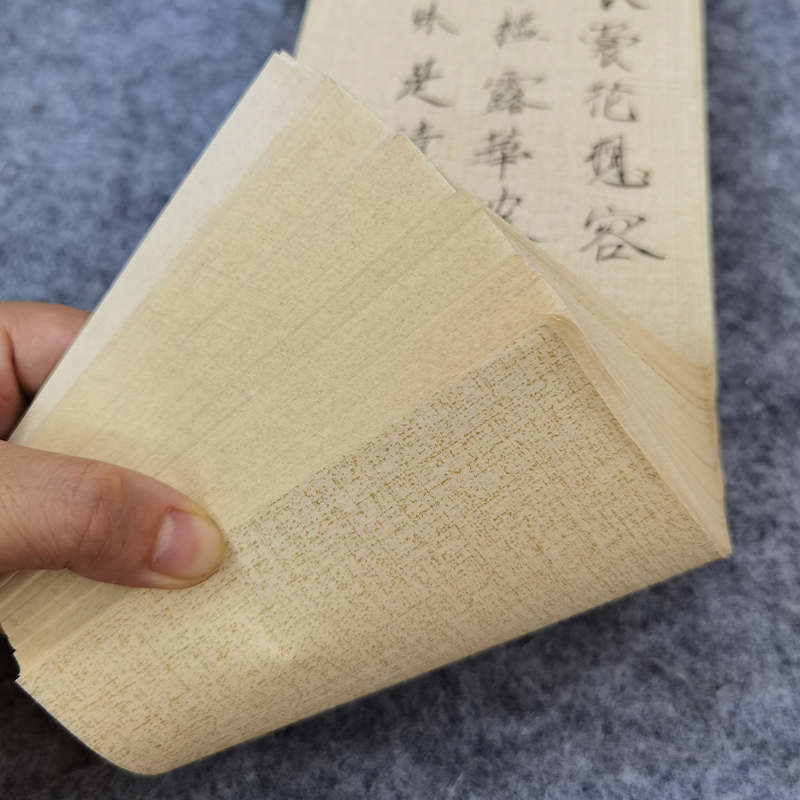 裳花想容
檻露華
昧是